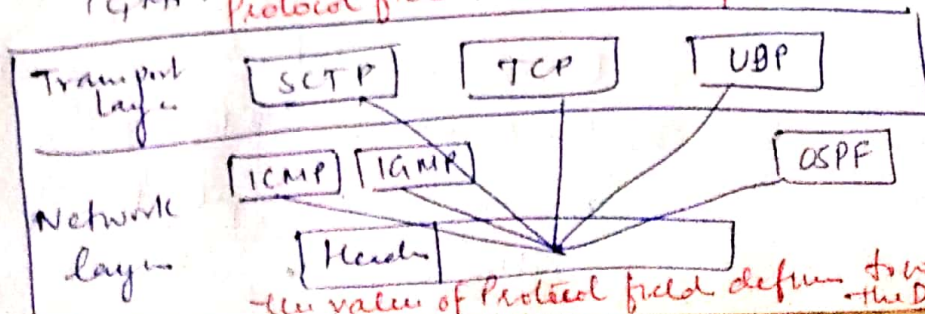 Protocol
Transport
Layer
SCTP
TCP
UBP
ICMP
IGMP
OSPF
Network
layer
Header
the value of Protocol field defines to w
the D